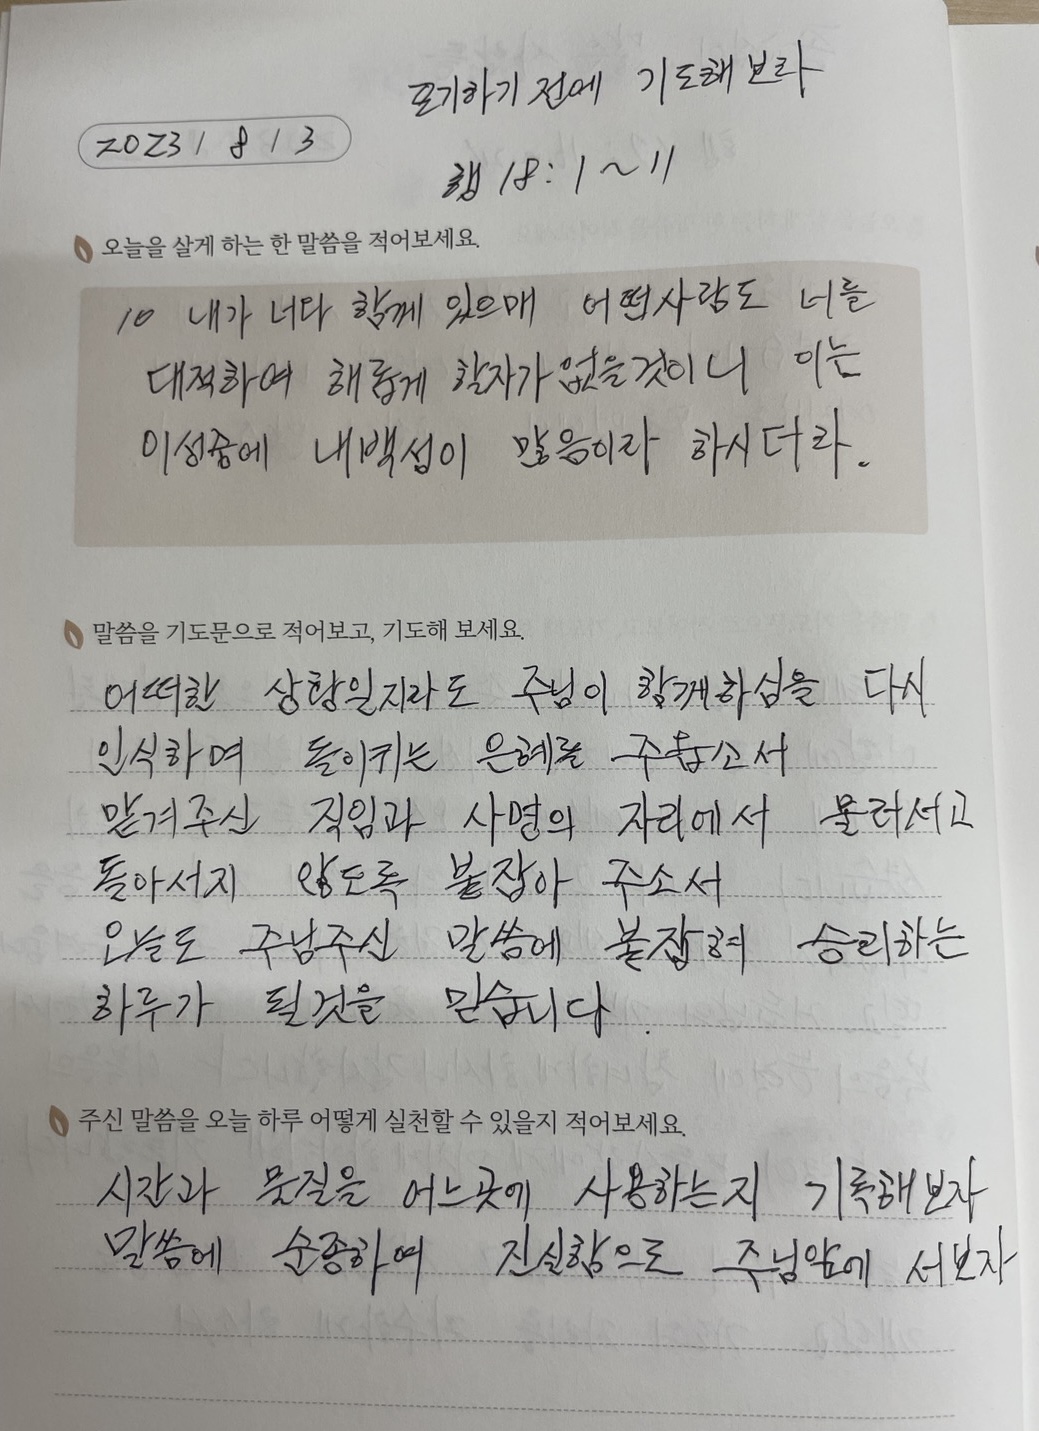 포기하기 전에 기도해 보라
2023 / 8 / 3
행 18 : 1 ~ 11
오늘을 살게 하는 한 말씀을 적어보세요.
10 내가 너다 함께 있으매 어떤사람도 너를
대적하여 해롭게 할자가 없을것이니 이는
이성중에 내백성이 많음이라 하시더라.
말씀을 기도문으로 적어보고, 기도해 보세요.
어떠한 상황일지라도 주님이 함께하심을 다시
인식하며 돌이키는 은혜를 주옵소서
맡겨주신 직임과 사명의 자리에서 물러서고
돌아서지 않도록 붙잡아 주소서
오늘도 주님주신 말씀에 붙잡혀 승리하는
하루가 될것을 믿습니다.
주신 말씀을 오늘 하루 어떻게 실천할 수 있을지 적어보세요.
시간과 물질을 어느곳에 사용하는지 기록해보자
말씀에 순종하여 진실함으로 주님앞에 서보자